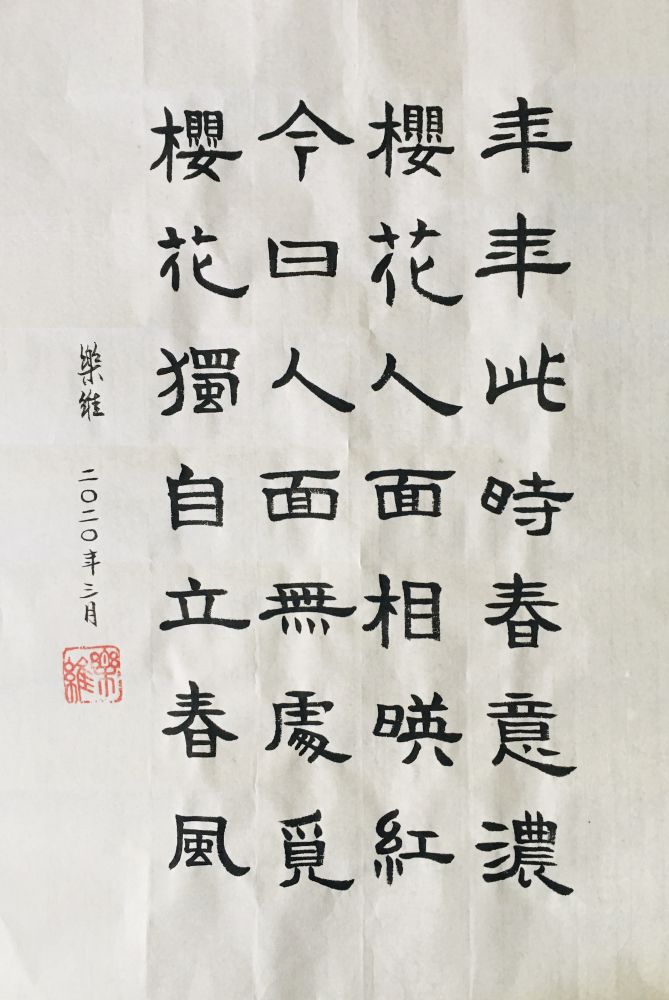 年年此時春意濃
櫻花人面相暎紅
今日人面無處覓
櫻花獨自立春風
樂維 二〇二〇年三月
樂維